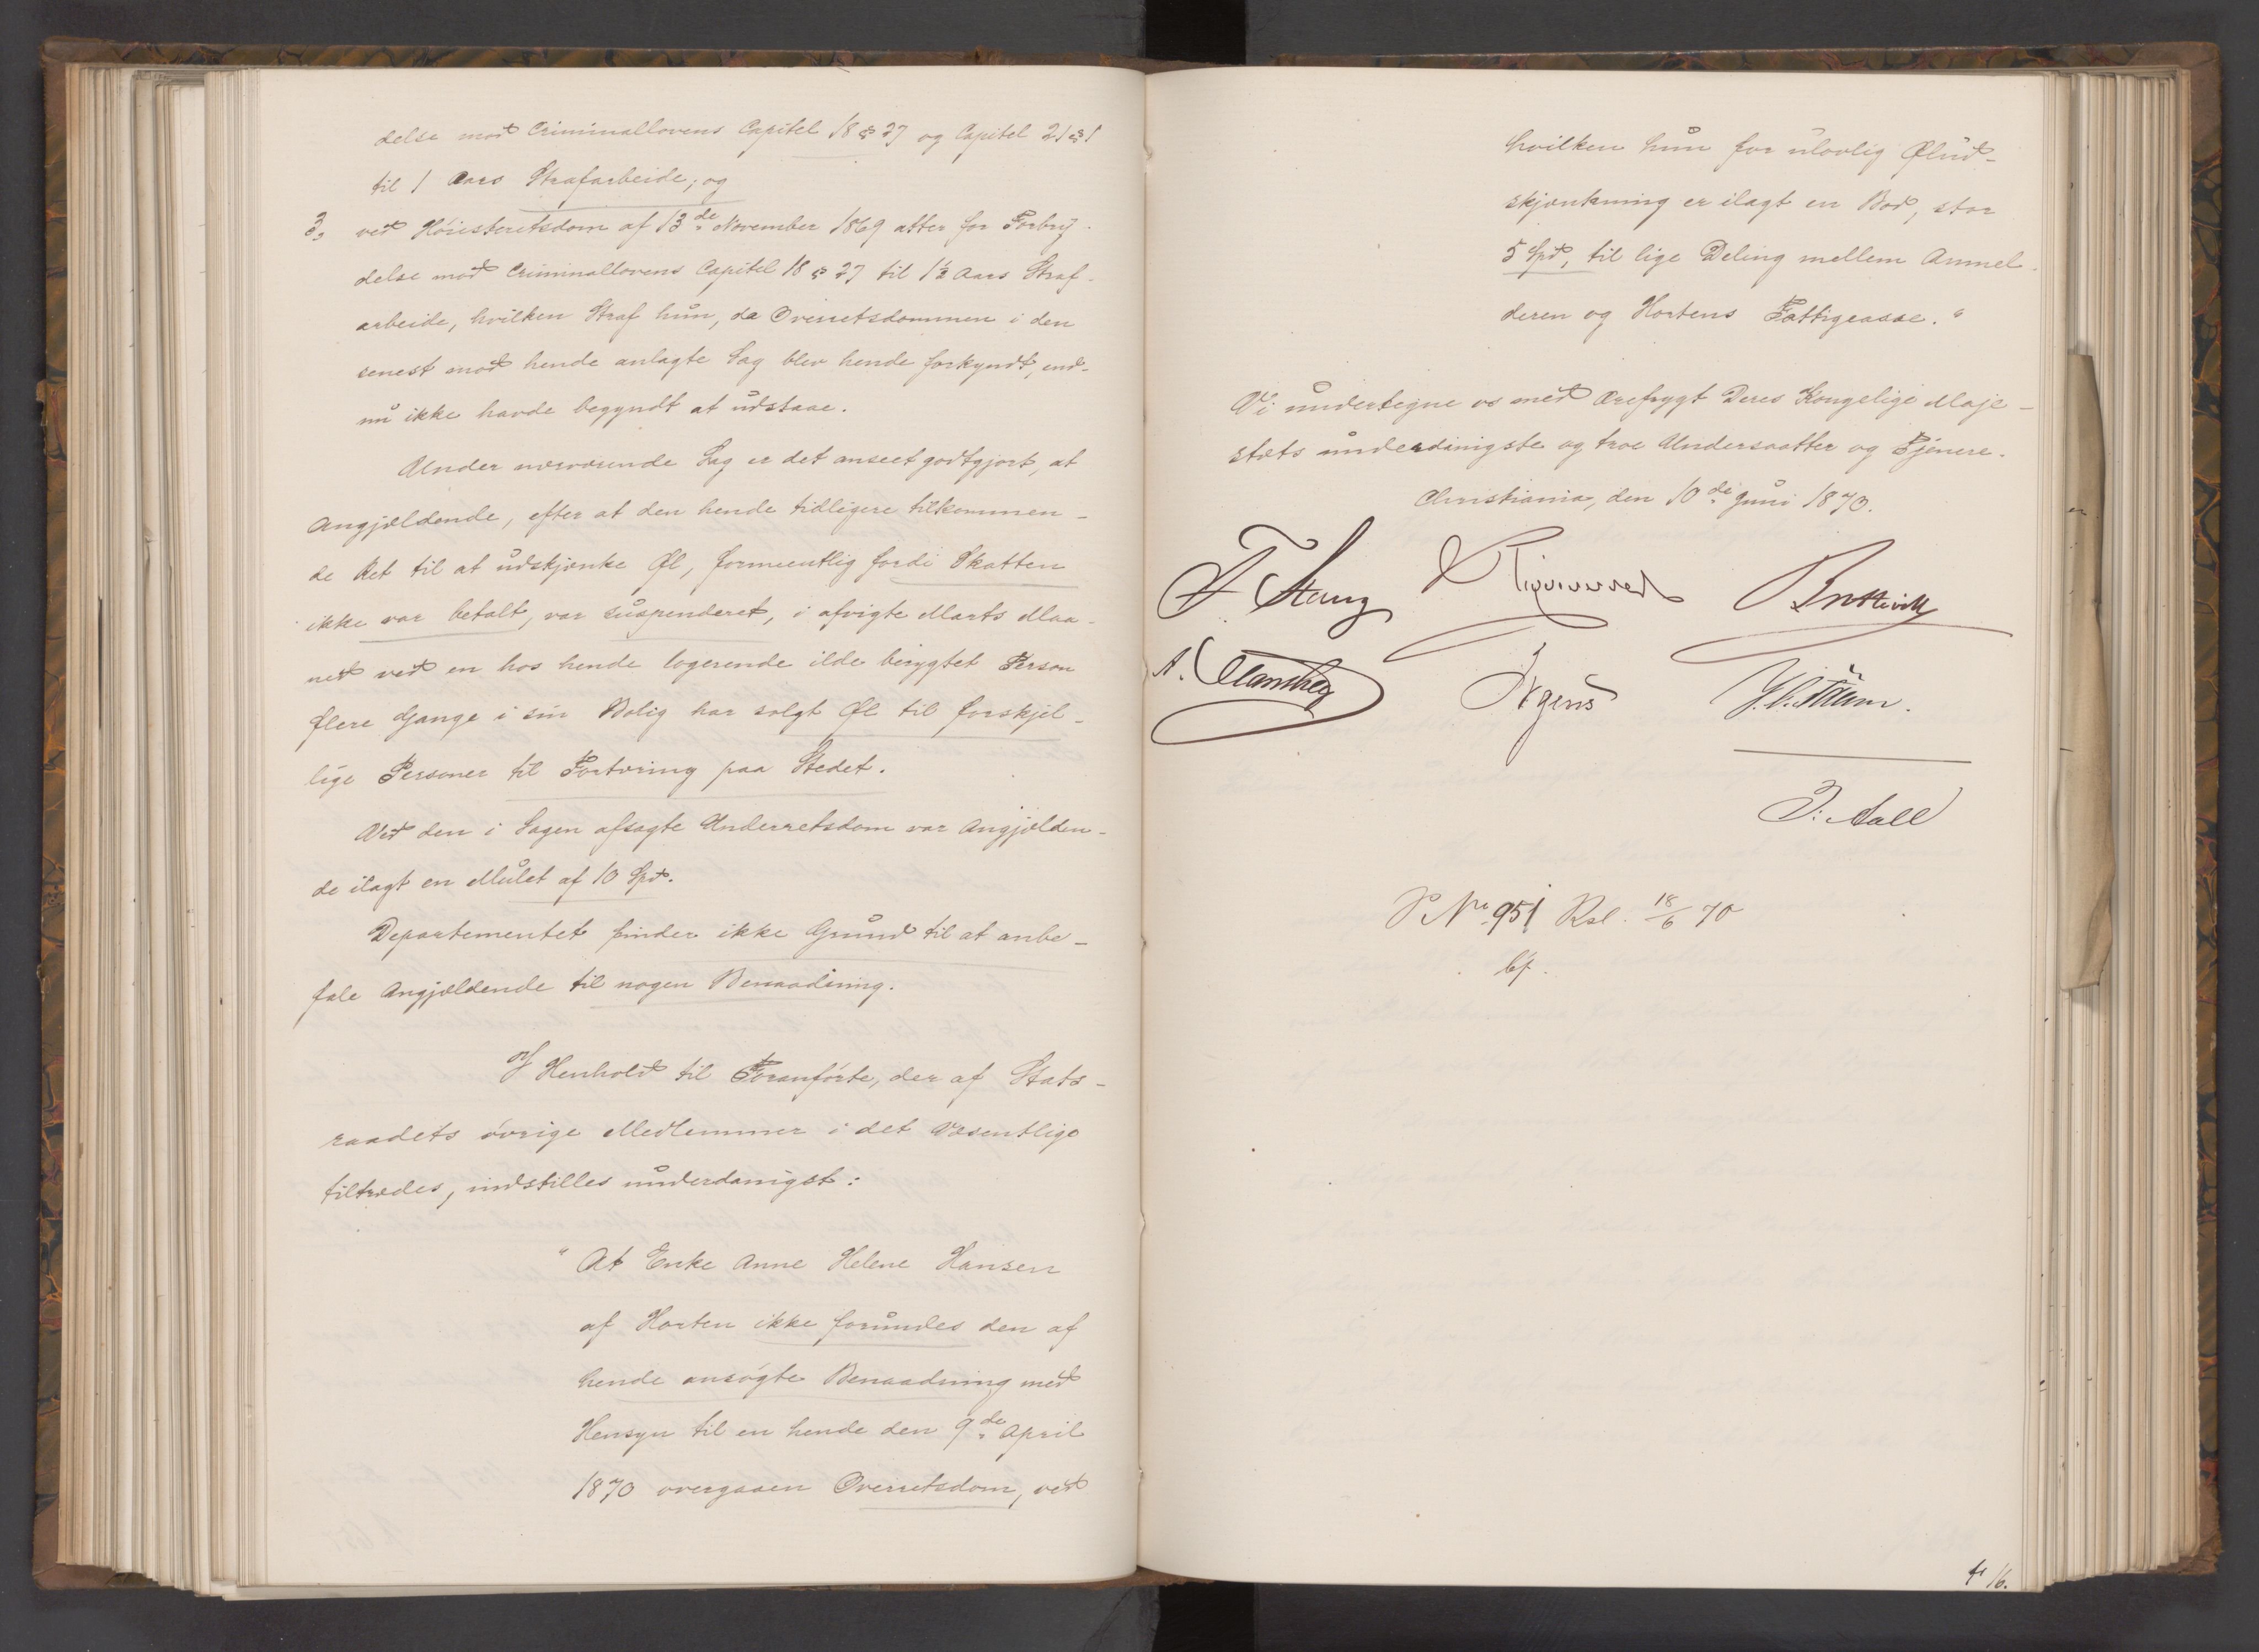 delse mod Criminallovens Capitel 18 § 27 og Capitel 21 § 1
til 1 Aars Strafarbeide; og
3, ved Høiesteretsdom af 13de November 1869 atter for Forbry-
delse mod Criminallovens Capitel 18 § 27 til 1½ Aars Straf-
arbeide, hvilken Straf hun, da Overretsdommen i den
senest mod hende anlagte Sag blev hende forkyndt, end-
nu ikke havde begyndt at udstaae.
Under nærværende Sag er det anseet godtgjort, at
Angjældende, efter at den hende tidligere tilkommen-
de Ret til at udskjænke Øl, formeentlig fordi Skatten
ikke var betalt, var suspenderet, i afvigte Marts Maa-
ned ved en hos hende logerende ilde berygtet Person
flere Gange i sin Bolig har solgt Øl til forskjel-
lige Personer til Fortæring paa Stedet.
Ved den i Sagen afsagte Underretsdom var Angjælden-
de ilagt en Mulct af 10 Spd.
Departementet finder ikke Grund til at anbe-
fale Angjældende til nogen Benaadning.
I Henhold til Foranførte, der af Stats-
raadets øvrige Medlemmer i det Væsentlige
tiltrædes, indstilles underdanigst:
"At Enke Anne Helene Hansen
af Horten ikke forundes den af
hende ansøgte Benaadning med
Hensyn til en hende den 9de April
1870 overgaaen Overretsdom, ved
hvilken hun for ulovlig Ølud-
skjænkning er ilagt en Bod, stor
5 Spd, til lige Deling mellem Anmel-
deren og Hortens Fattigcasse."
Vi undertegne os med Ærefrygt Deres Kongelige Maje-
stæts underdanigste og troe Undersaatter og Tjenere.
Christiania, den 10de Juni 1870.
F Stang
Bretteville
Irgens
J. Aall
No 951 Rsl. 18/6 70
16.